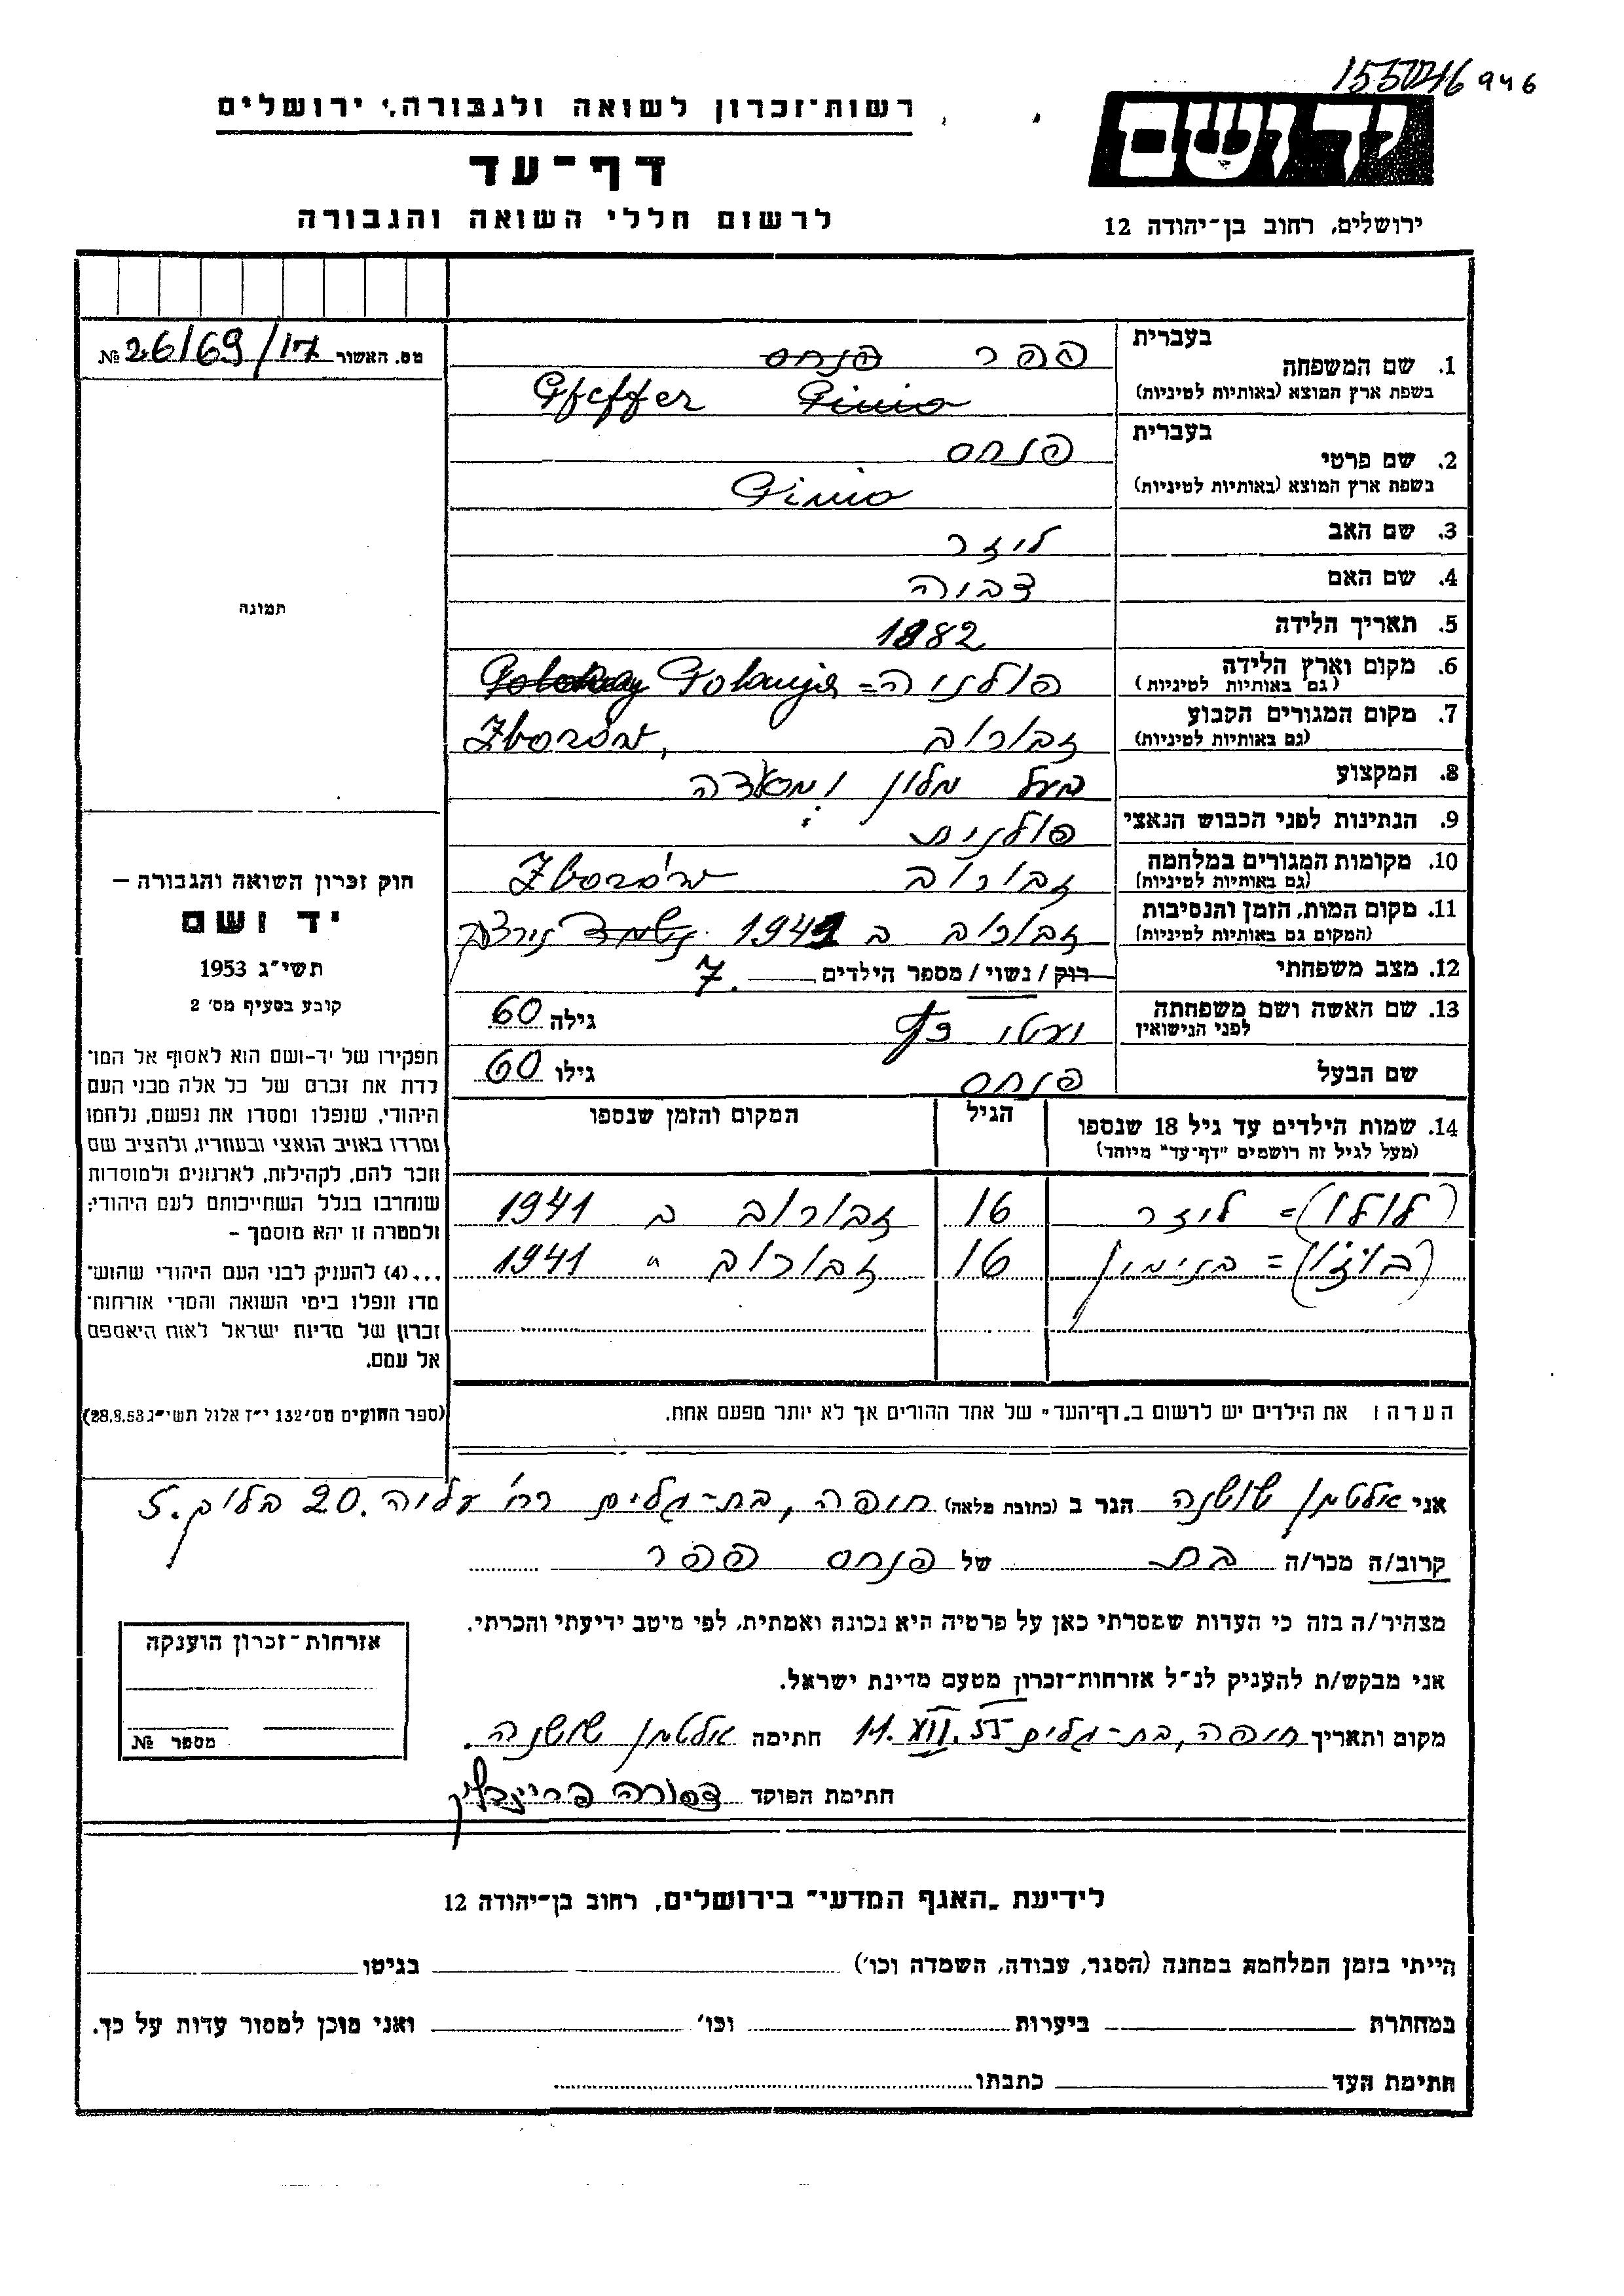 946
רשות־זכרון לשואה ולגבורה, ירושלים
יד ושם
דף־עד
ירושלים, רחוב בן־יהודה 12
לרשום חללי השואה והגבורה
מס. האשור № 26/69/17א
1. שם המשפחה בעברית פפר פנחס
בשפת ארץ המוצא (באותיות לטיניות) Pfeffer
2. שם פרטי בעברית פנחס
בשפת ארץ המוצא (באותיות לטיניות)
3. שם האב ליזר
4. שם האם
5. תאריך הלידה 1882
6. מקום וארץ הלידה פולניה = Polanija
(גם באותיות לטיניות)
7. מקום המגורים הקבוע זבורוב Zborów,
(גם באותיות לטיניות)
8. המקצוע בעל מלון ומסעדה
9. הנתינות לפני הכבוש הנאצי פולנית
10. מקומות המגורים במלחמה זבורוב Zborów
(גם באותיות לטיניות)
11. מקום המות, הזמן והנסיבות זבורוב ב 1941
(המקום גם באותיות לטיניות)
12. מצב משפחתי רווק / נשוי / מספר הילדים 7.
13. שם האשה ושם משפחתה לפני הנישואין גילה 60
שם הבעל פנחס גילו 60
14. שמות הילדים עד גיל 18 שנספו הגיל המקום והזמן שנספו
(מעל לגיל זה רושמים "דף־עד" מיוחד)
(לולו) = ליזר 16 זבורוב ב 1941
בנימין 16 זבורוב " 1941
הערה: את הילדים יש לרשום ב„דף־העד" של אחד ההורים אך לא יותר מפעם אחת.
תמונה
חוק זכרון השואה והגבורה –
יד ושם
תשי"ג 1953
קובע בסעיף מס' 2
תפקידו של יד-ושם הוא לאסוף אל המו־
לדת את זכרם של כל אלה מבני העם
היהודי, שנפלו ומסרו את נפשם, נלחמו
ומרדו באויב הנאצי ובעוזריו, ולהציב שם
וזכר להם, לקהילות, לארגונים ולמוסדות
שנחרבו בגלל השתייכותם לעם היהודי;
ולמטרה זו יהא מוסמך –
...(4) להעניק לבני העם היהודי שהוש־
מדו ונפלו בימי השואה והמרי אזרחות־
זכרון של מדינת ישראל לאות היאספם
אל עמם.
(ספר החוקים מס' 132 י"ז אלול תשי"ג 28.8.53)
אני אלטמן שושנה הגר ב (כתובת מלאה) חיפה, בת-גלים רח' עליה 20. בלוק 5.
קרוב/ה מכר/ה בת של פנחס פפר
מצהיר/ה בזה כי העדות שמסרתי כאן על פרטיה היא נכונה ואמתית, לפי מיטב ידיעתי והכרתי.
אני מבקש/ת להעניק לנ"ל אזרחות־זכרון מטעם מדינת ישראל.
מקום ותאריך חיפה, בת-גלים 11.VII.55 חתימה אלטמן שושנה.
חתימת הפוקד
אזרחות־זכרון הוענקה
מספר №
לידיעת „האגף המדעי" בירושלים, רחוב בן־יהודה 12
הייתי בזמן המלחמה במחנה (הסגר, עבודה, השמדה וכו') בגיטו
במחתרת ביערות וכו' ואני מוכן למסור עדות על כך.
חתימת העד כתבתו